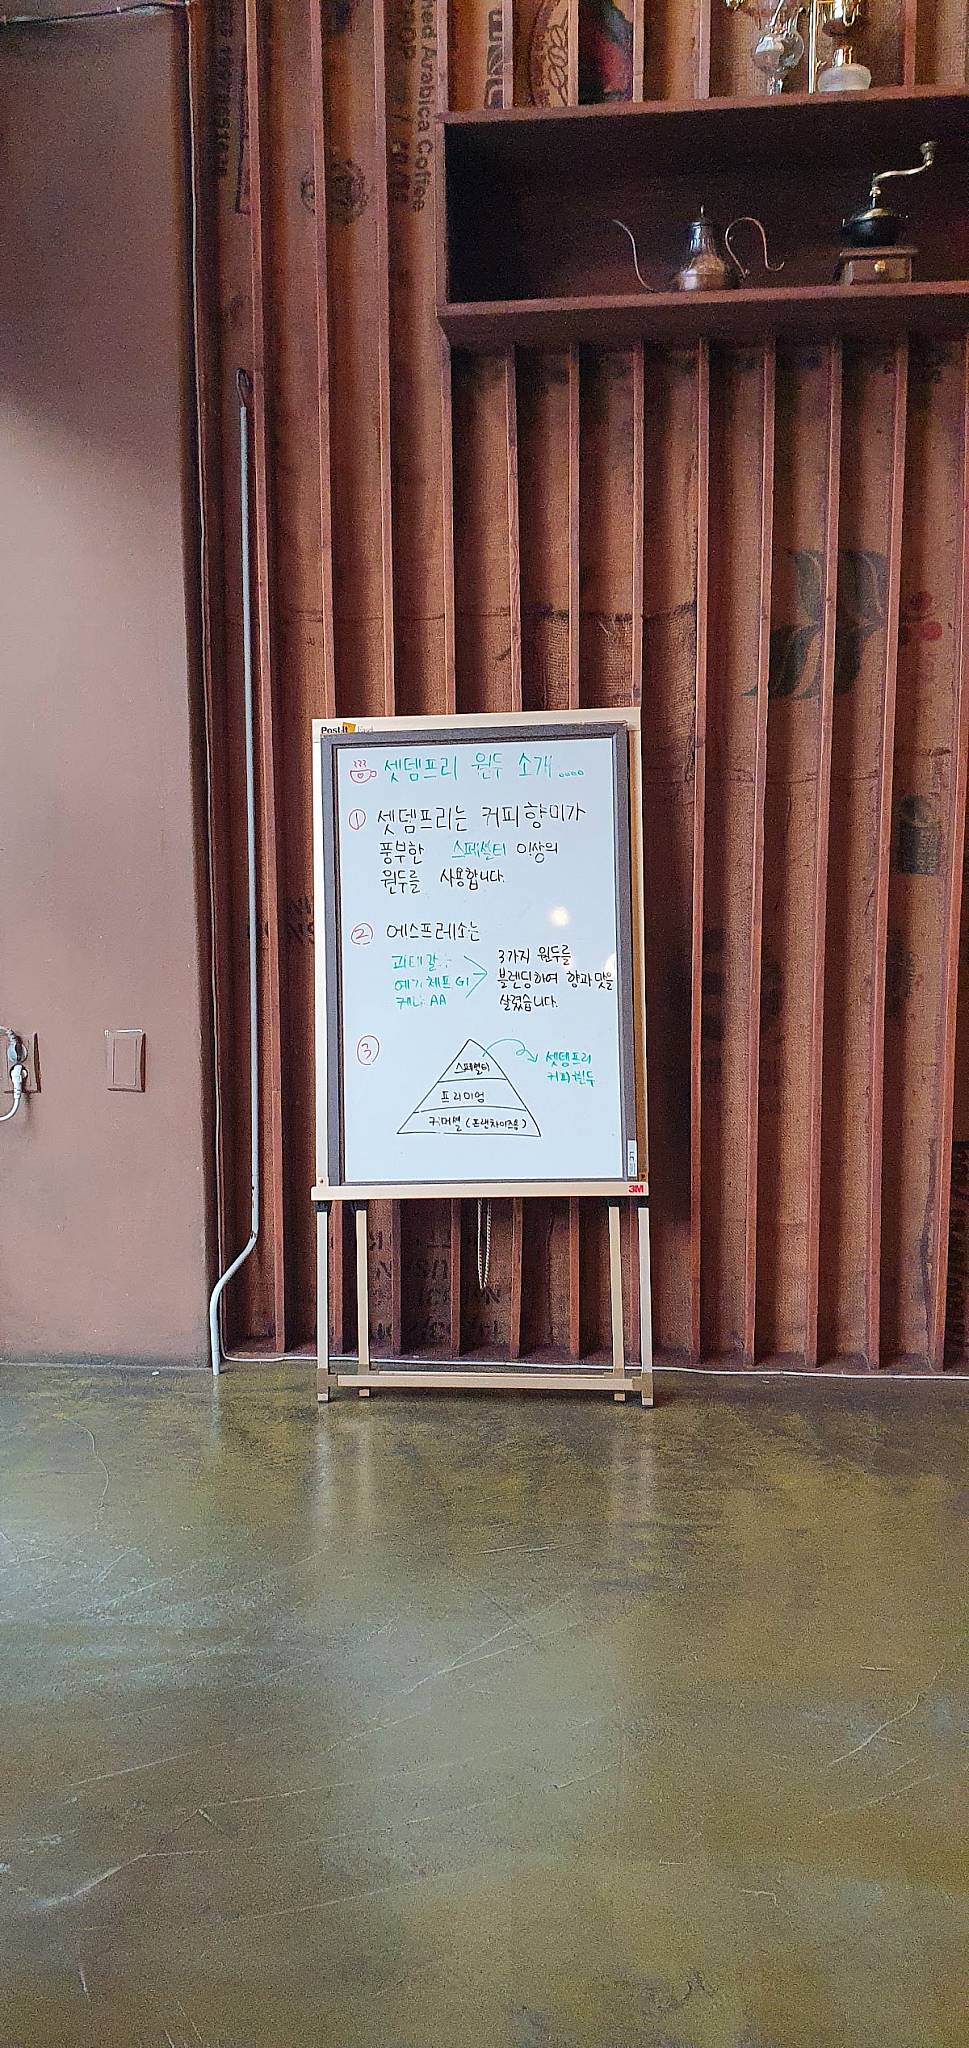 Arabica Coffee
Post-it
셋뎀프리 원두 소개....
① 셋뎀프리는 커피향미가
풍부한 스페셜티 이상의
원두를 사용합니다.
② 에스프레소는
예가체프 G1
케냐 AA
3가지 원두를
블렌딩하여 향과 맛을
살렸습니다.
③
스페셜티
셋뎀프리
커피원두
프리미엄
커머셜 (프랜차이즈용)
3M